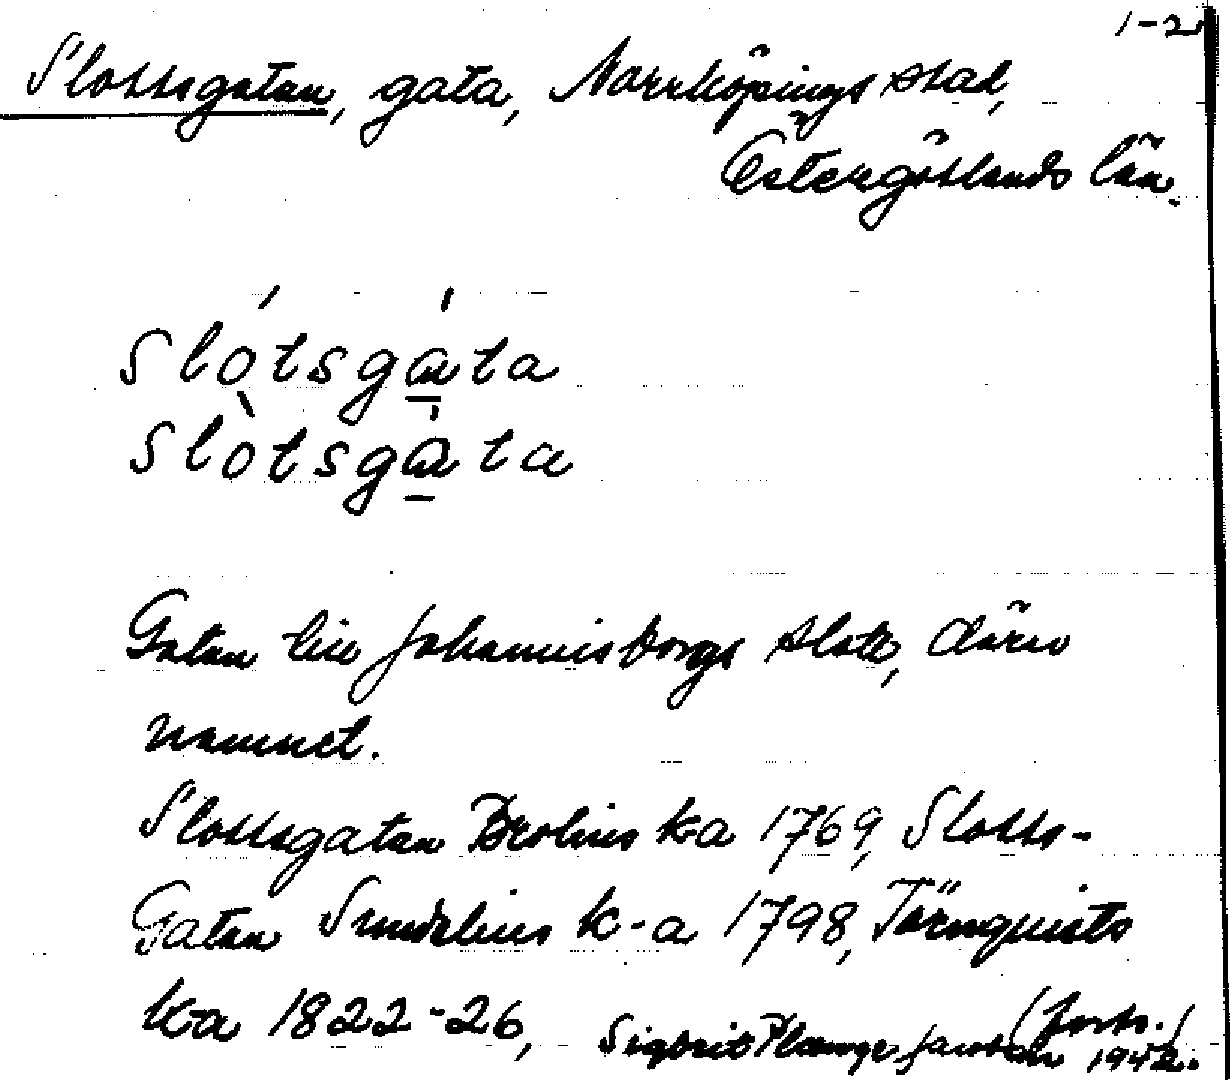 1-2
Slottsgatan, gata, Norrköpings stad,
Östergötlands län.
Slótsgáta
Slòtsgáta
Gatan till Johannisborgs slott, därav
namnet.
Slottsgatan Brolins ka 1769, Slotts-
Gatan Sundelius k-a 1798, Törnquists
ka 1822-26, (forts.)
Sigbrit Plænge Jacobson 1942.